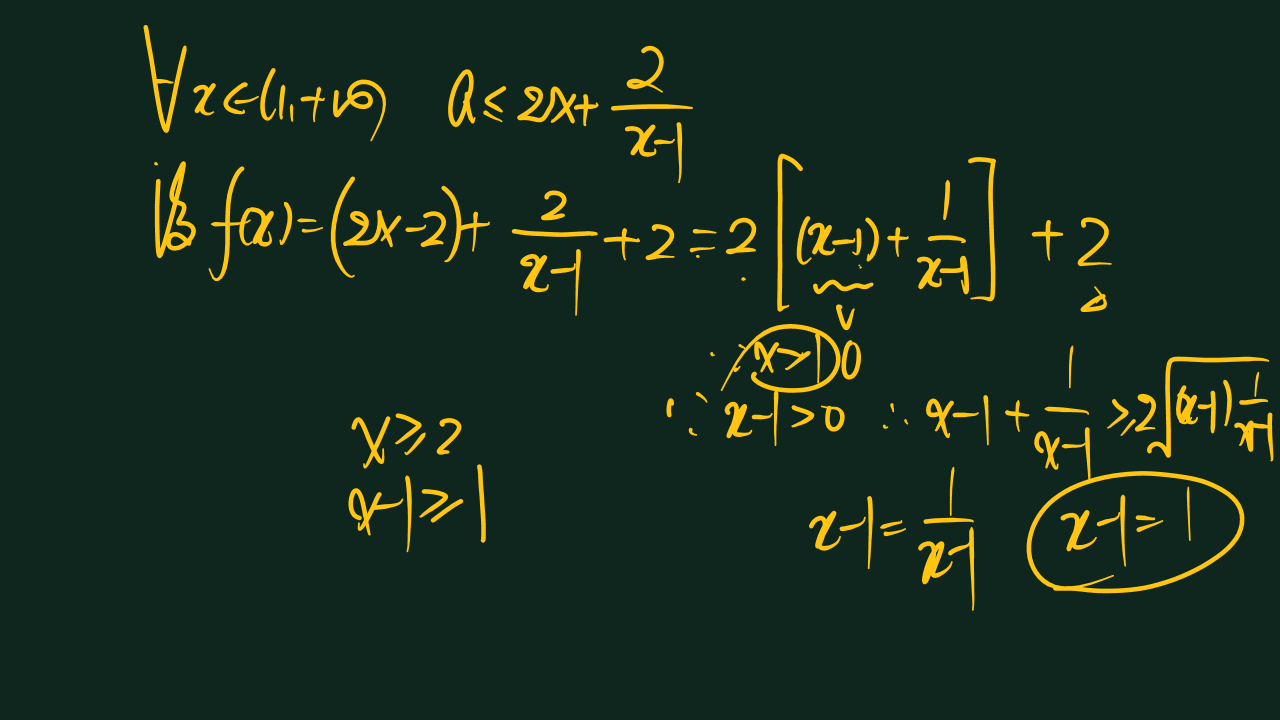 ∀x∈(1,+∞) a≤2x+\frac{2}{x-1}
f(x)=(2x-2)+\frac{2}{x-1}+2=2[(x-1)+\frac{1}{x-1}]+2
∵x>1 0
∵x-1>0 ∴x-1+\frac{1}{x-1}≥2\sqrt{(x-1)\frac{1}{x-1}}
x≥2
x-1≥1
x-1=\frac{1}{x-1} x-1=1